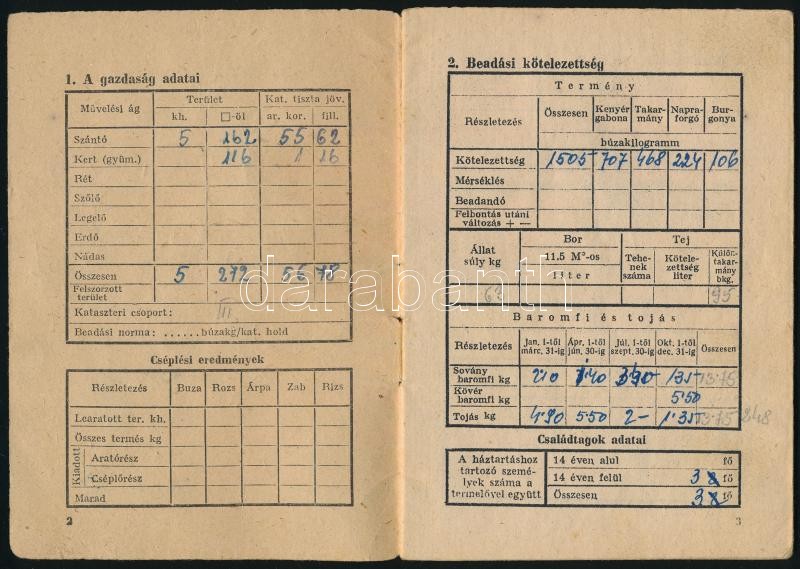 1. A gazdaság adatai
Művelési ág Terület Kat. tiszta jöv.
kh. □-öl ar. kor. fill.
Szántó 5 162 55 62
Kert (gyüm.) 116 1 16
Rét
Szőlő
Legelő
Erdő
Nádas
Összesen 5 272 56 78
Felszorzott terület
Kataszteri csoport: III.
Beadási norma: ......búzakg/kat. hold
Cséplési eredmények
Részletezés Buza Rozs Árpa Zab Rizs
Learatott ter. kh.
Összes termés kg
Kiadott
Aratórész
Cséplőrész
Marad
2
2. Beadási kötelezettség
Termény
Részletezés Összesen Kenyér gabona Takar- mány Napra- forgó Bur- gonya
búzakilogramm
Kötelezettség 1505 707 468 224 106
Mérséklés
Beadandó
Felbontás utáni változás + —
Állat súly kg Bor Tej Külön- takar- mány bkg.
11.5 M°-os Tehe- nek száma Kötele- zettség liter
liter
95
Baromfi és tojás
Részletezés Jan. 1-től márc. 31-ig Ápr. 1-től jún. 30-ig Júl. 1-től szept. 30-ig Okt. 1-től dec. 31-ig Összesen
Sovány baromfi kg 1·35 13·75
Kövér baromfi kg 5·50
Tojás kg 4·90 5·50 2- 1·35 13·75 248
Családtagok adatai
A háztartáshoz tartozó szemé- lyek száma a termelővel együtt
14 éven alul fő
14 éven felül 3 fő
Összesen 3 fő
3
darabanth